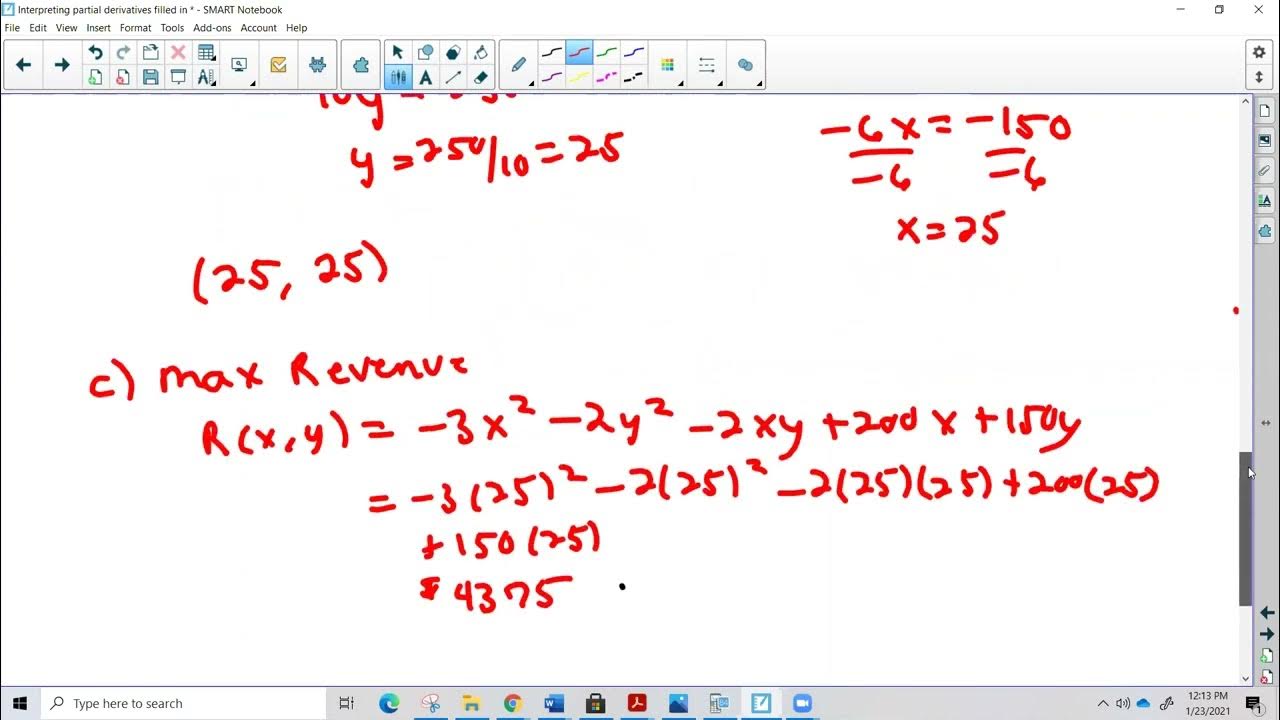 Interpreting partial derivatives filled in * - SMART Notebook
File Edit View Insert Format Tools Add-ons Account Help
y = 250/10 = 25
-6x = -150
-6 -6
x = 25
(25, 25)
c) max Revenue
R(x,y) = -3x² -2y² -2xy +200x +150y
= -3(25)² -2(25)² -2(25)(25) +200(25)
+150(25)
$4375
Type here to search
12:13 PM
1/23/2021